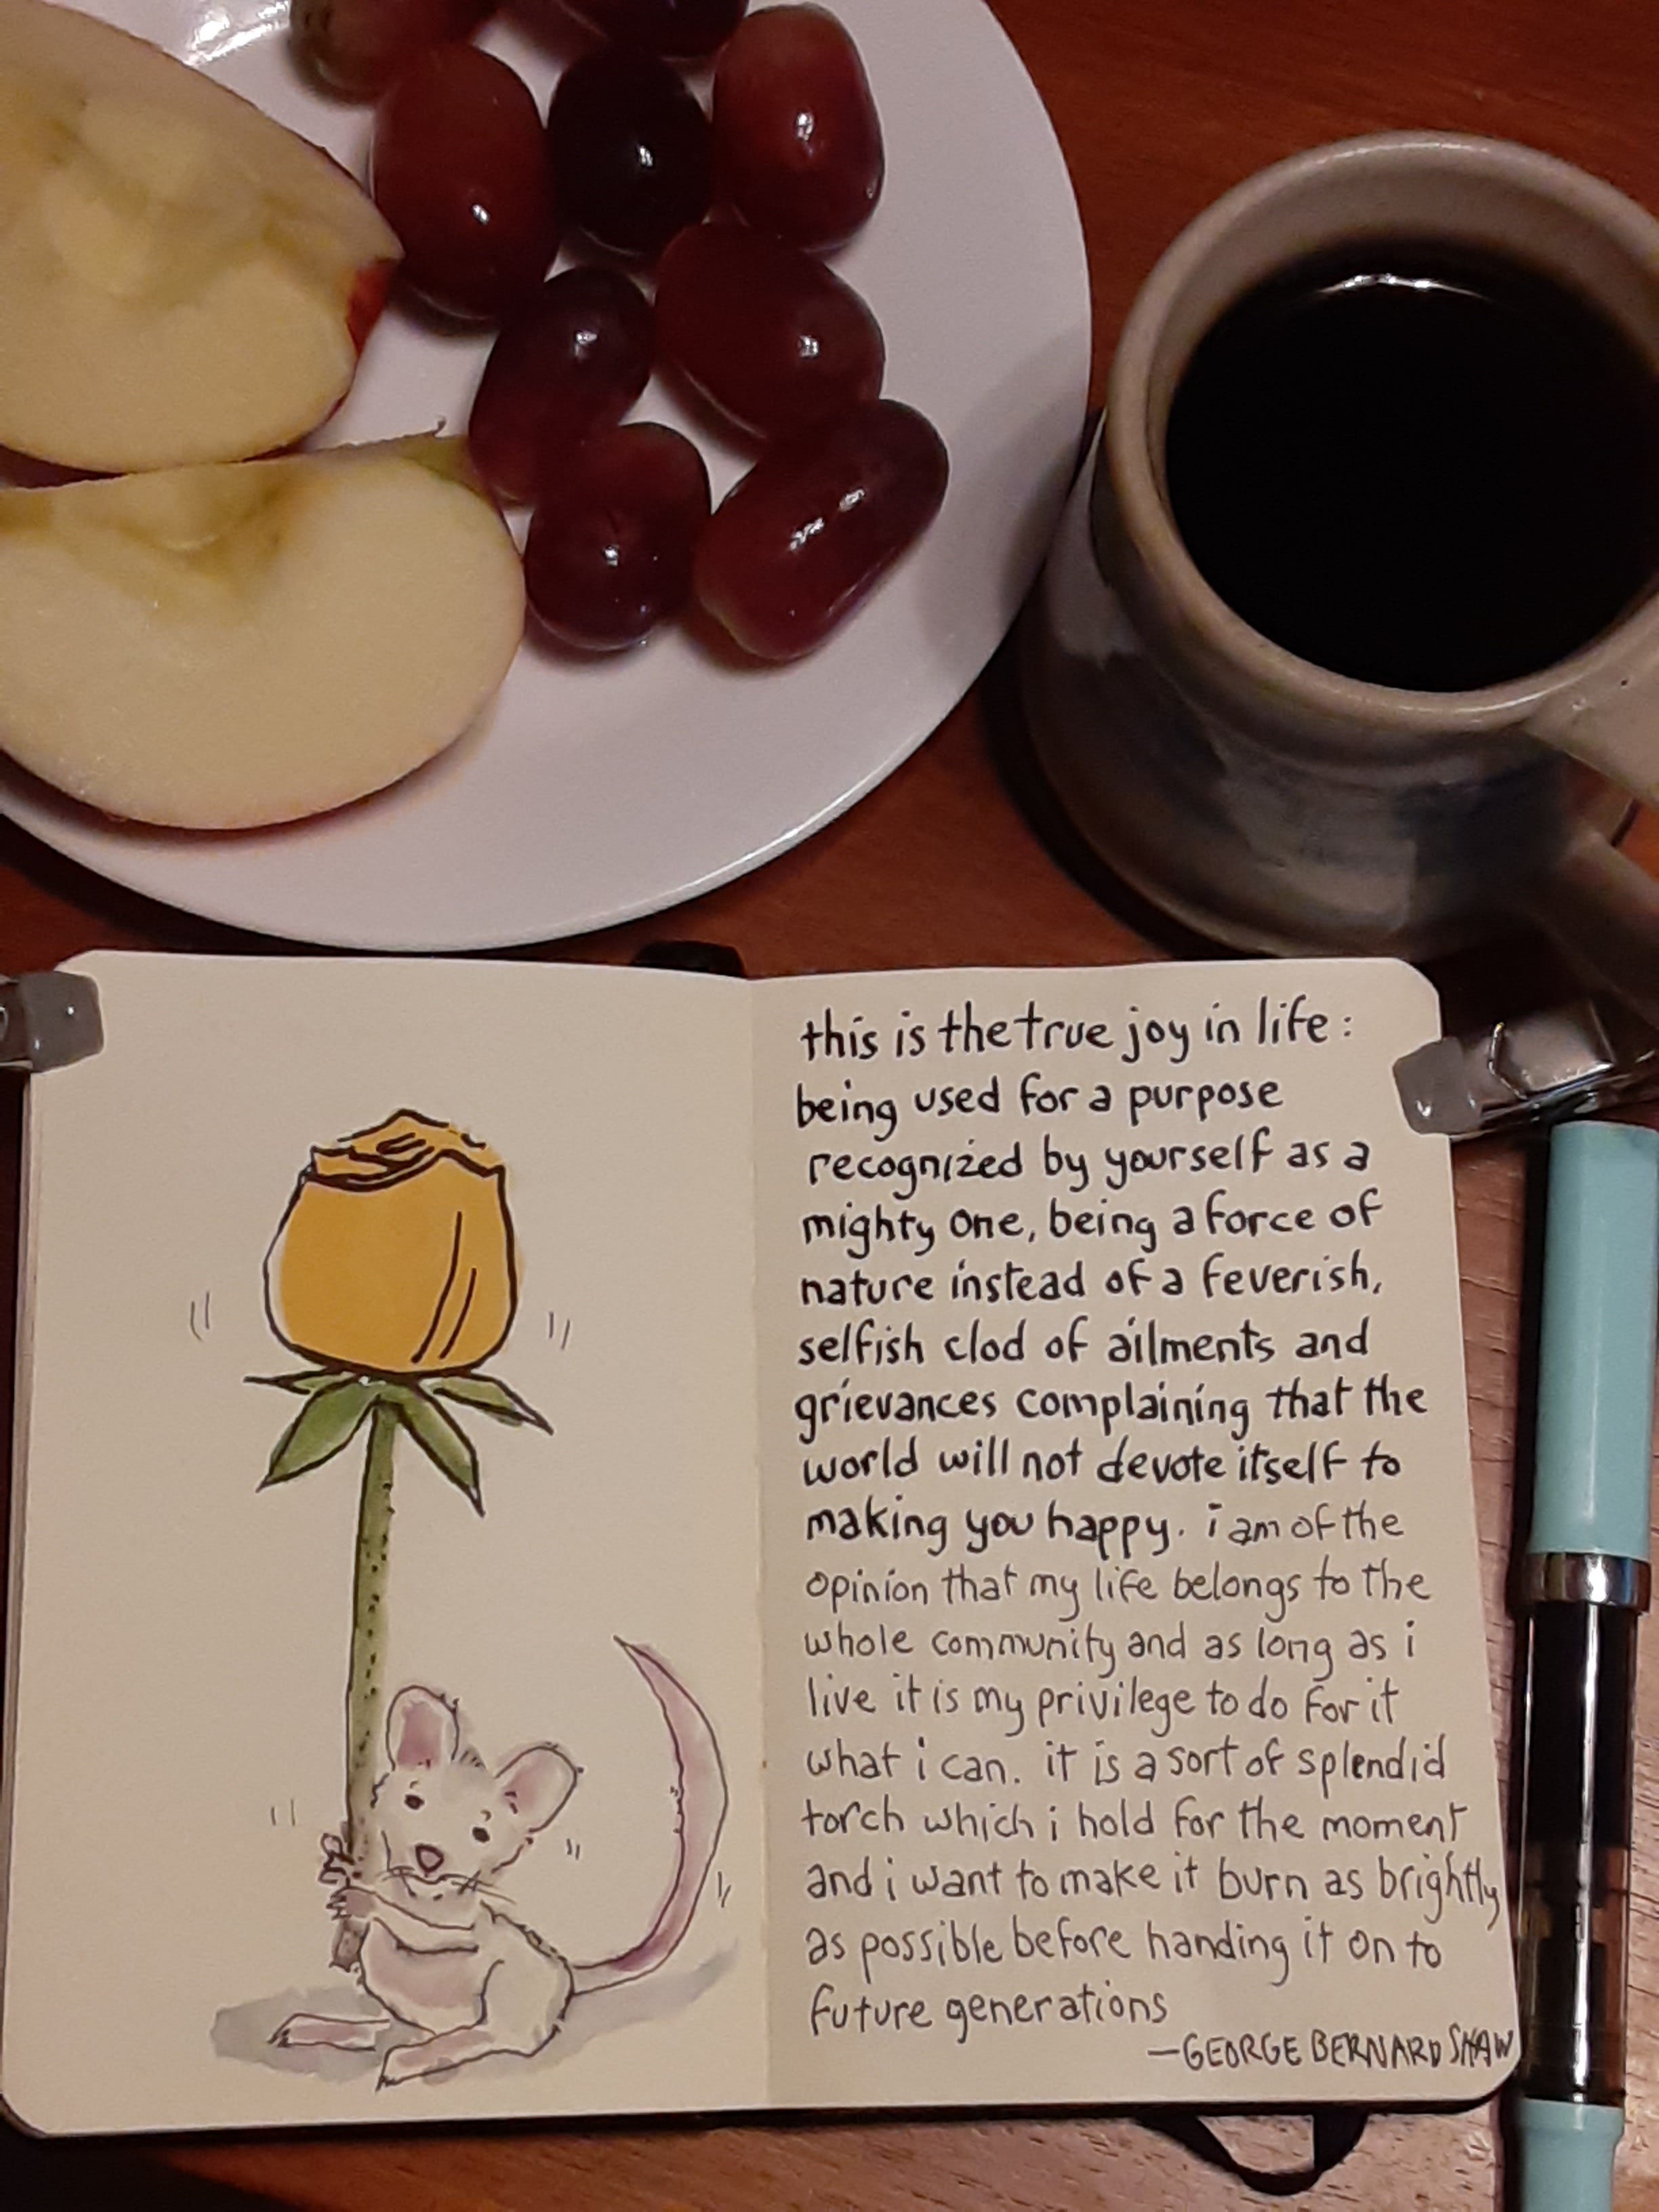 this is the true joy in life:
being used for a purpose
recognized by yourself as a
mighty one, being a force of
nature instead of a feverish,
selfish clod of ailments and
grievances complaining that the
world will not devote itself to
making you happy. i am of the
opinion that my life belongs to the
whole community and as long as i
live it is my privilege to do for it
what i can. it is a sort of splendid
torch which i hold for the moment
and i want to make it burn as brightly
as possible before handing it on to
future generations
—GEORGE BERNARD SHAW